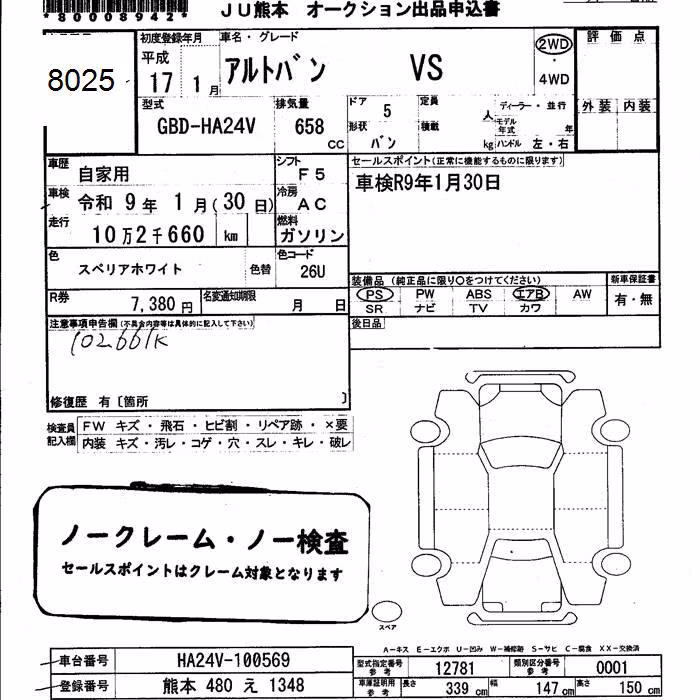 *80008942*
JU熊本 オークション出品申込書
8025
初度登録年月
平成
17 1月
車名・グレード
アルトバン VS
2WD
・
4WD
評価点
外装 内装
型式
GBD-HA24V
排気量
658
cc
ドア
5
形状
バン
定員
人
積載
kg
ディーラー・並行
モデル年式 年
ハンドル 左・右
車歴
自家用
シフト
F5
セールスポイント(正常に機能するものに限ります)
車検R9年1月30日
車検
令和 9年 1月(30日)
冷房
AC
走行
10万2千660 km
燃料
ガソリン
色
スペリアホワイト
色替
色コード
26U
装備品(純正品に限り○をつけてください)
PS PW ABS エアB AW
SR ナビ TV カワ
新車保証書
有・無
R券
7,380円
名変通知期限
月 日
後日品
注意事項申告欄(不具合内容等は具体的に記入して下さい)
102661K
修復歴 有〔箇所 〕
検査員
記入欄
FW キズ・飛石・ヒビ割・リペア跡・×要
内装 キズ・汚レ・コゲ・穴・スレ・キレ・破レ
ノークレーム・ノー検査
セールスポイントはクレーム対象となります
スペア
A-キス E-エクボ U-凹み W-補修跡 S-サビ C-腐食 XX-交換済
車台番号
HA24V-100569
型式指定番号
参考
12781
類別区分番号
参考
0001
登録番号
熊本 480 え 1348
車庫証明用
参考
長さ
339 cm
幅
147 cm
高さ
150 cm